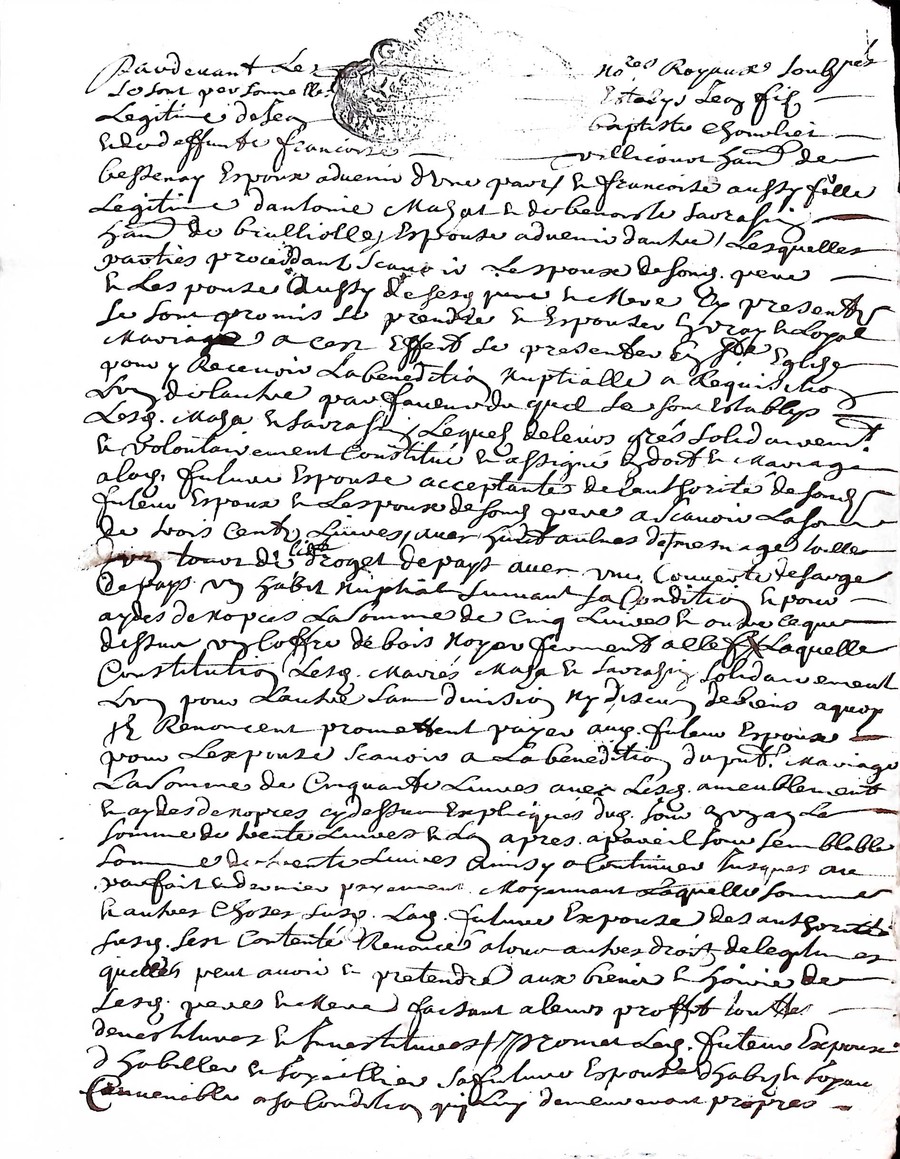 Pardevant Les no.res Royaux soubz.nés
Se sont personnelle establys Leon filz
Legitime de feu baptiste
et de deffuncte francoise villiconor hant de
bessenay Espoux advenir d'Une part, et francoise aussy fille
Legitime d'antoine Mazat et de benoiste savrassin
hant de brulliolles Espouse advenir d'autre / Lesquelles
parties procedant scavoir Lespoux de son d. pere
et Les pouse Aussy de sesd. pere et Mere Icy presents
Se sont promis se prendre et Espouser En vray et Loyal
Mariage a cest Effect se presenter En s.te Eglise
pour y Recevoir La benediction Nuptialle a Requisition
L'un de lautre par faveur du quel se sont Establys
Lesd. Maza et savrassin, Lequels de leurs grés solidairement
et volontairement Constitué et assigné En dot et Mariage
a lad. future Espouse acceptante de l'authorité de sond.
futeur Espoux et Lespoux de sond. pere a scavoir La somme
de trois Cents Livres, avec huict aulnes de mesnage toille
un tour de lict droget de pays avec une Couverte de sarge
de pays un habit Nuptial suivant sa Condition et pour
aydes de nopces La somme de Cinq Livres et outre ce que
dessus un Coffre de bois Noyer fermant a clef Laquelle
Constitution Lesd. Mariés Maza et savrassin solidairement
L'un pour Lautre sans division Ny discu.on de biens a quoy
Ils Renoncent promettent payer aud. futeur Espoux
pour Lespouse scavoir a La benediction du p.nt Mariage
La somme de Cinquante Livres avec Lesd. ameublements
et aydes de nopces cy dessus Expliqués dud. jour En un an La
somme de trente Livres et L'an apres a pareil jour semblable
somme de trente Livres Ainsy a Continuer Jusques au
parfait et dernier payement. Moyennant Laquelle somme
et autres Choses susd. Lad. future Espouse des authorités
susd. s'est Contenté Renonce a tous autres droits de legitimes
quelles peut avoir et pretendre aux biens et hoirie de
Lesd. peres et Mere faisant a leurs proffit touttes
devestitures et Investitures / Promet Led. futeur Espoux
d'habiller et Joyaillier sa future Espouse d'habits et Joyaux
Convenable a sa Condition qui Luy demeureront propres